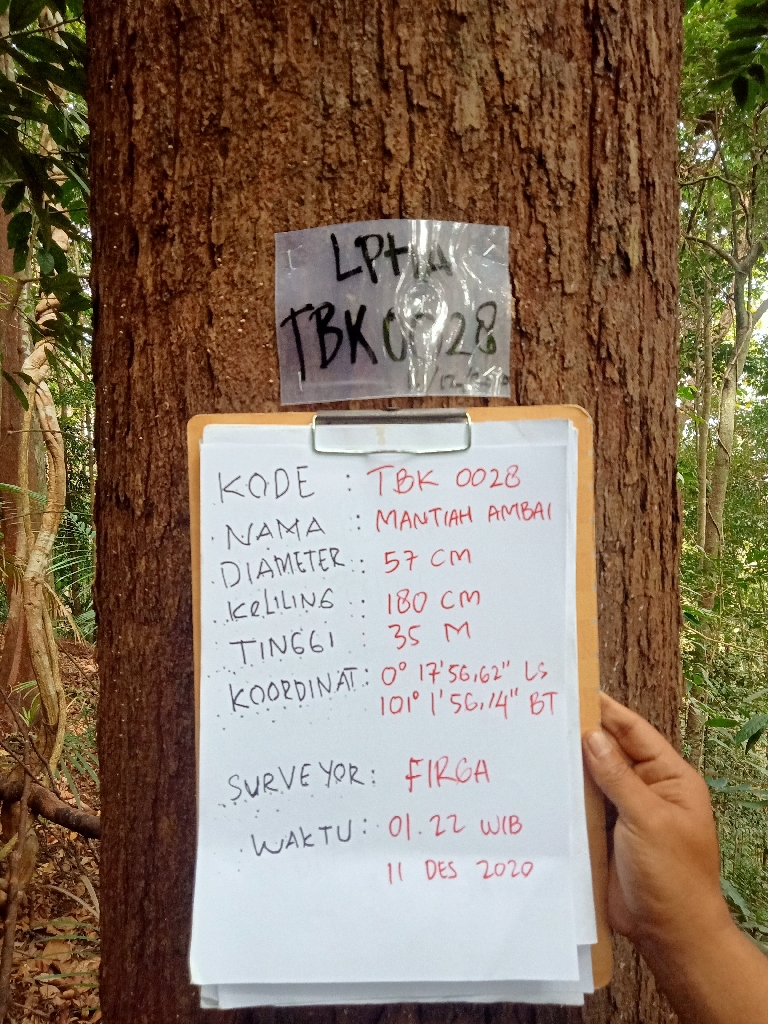 LPHA
TBK 0028
KODE : TBK 0028
NAMA : MANTIAH AMBAI
DIAMETER : 57 CM
KELILING : 180 CM
TINGGI : 35 M
KOORDINAT : 0° 17' 56,62" LS
101° 1' 56,14" BT
SURVEYOR : FIRGA
WAKTU : 01.22 WIB
11 DES 2020